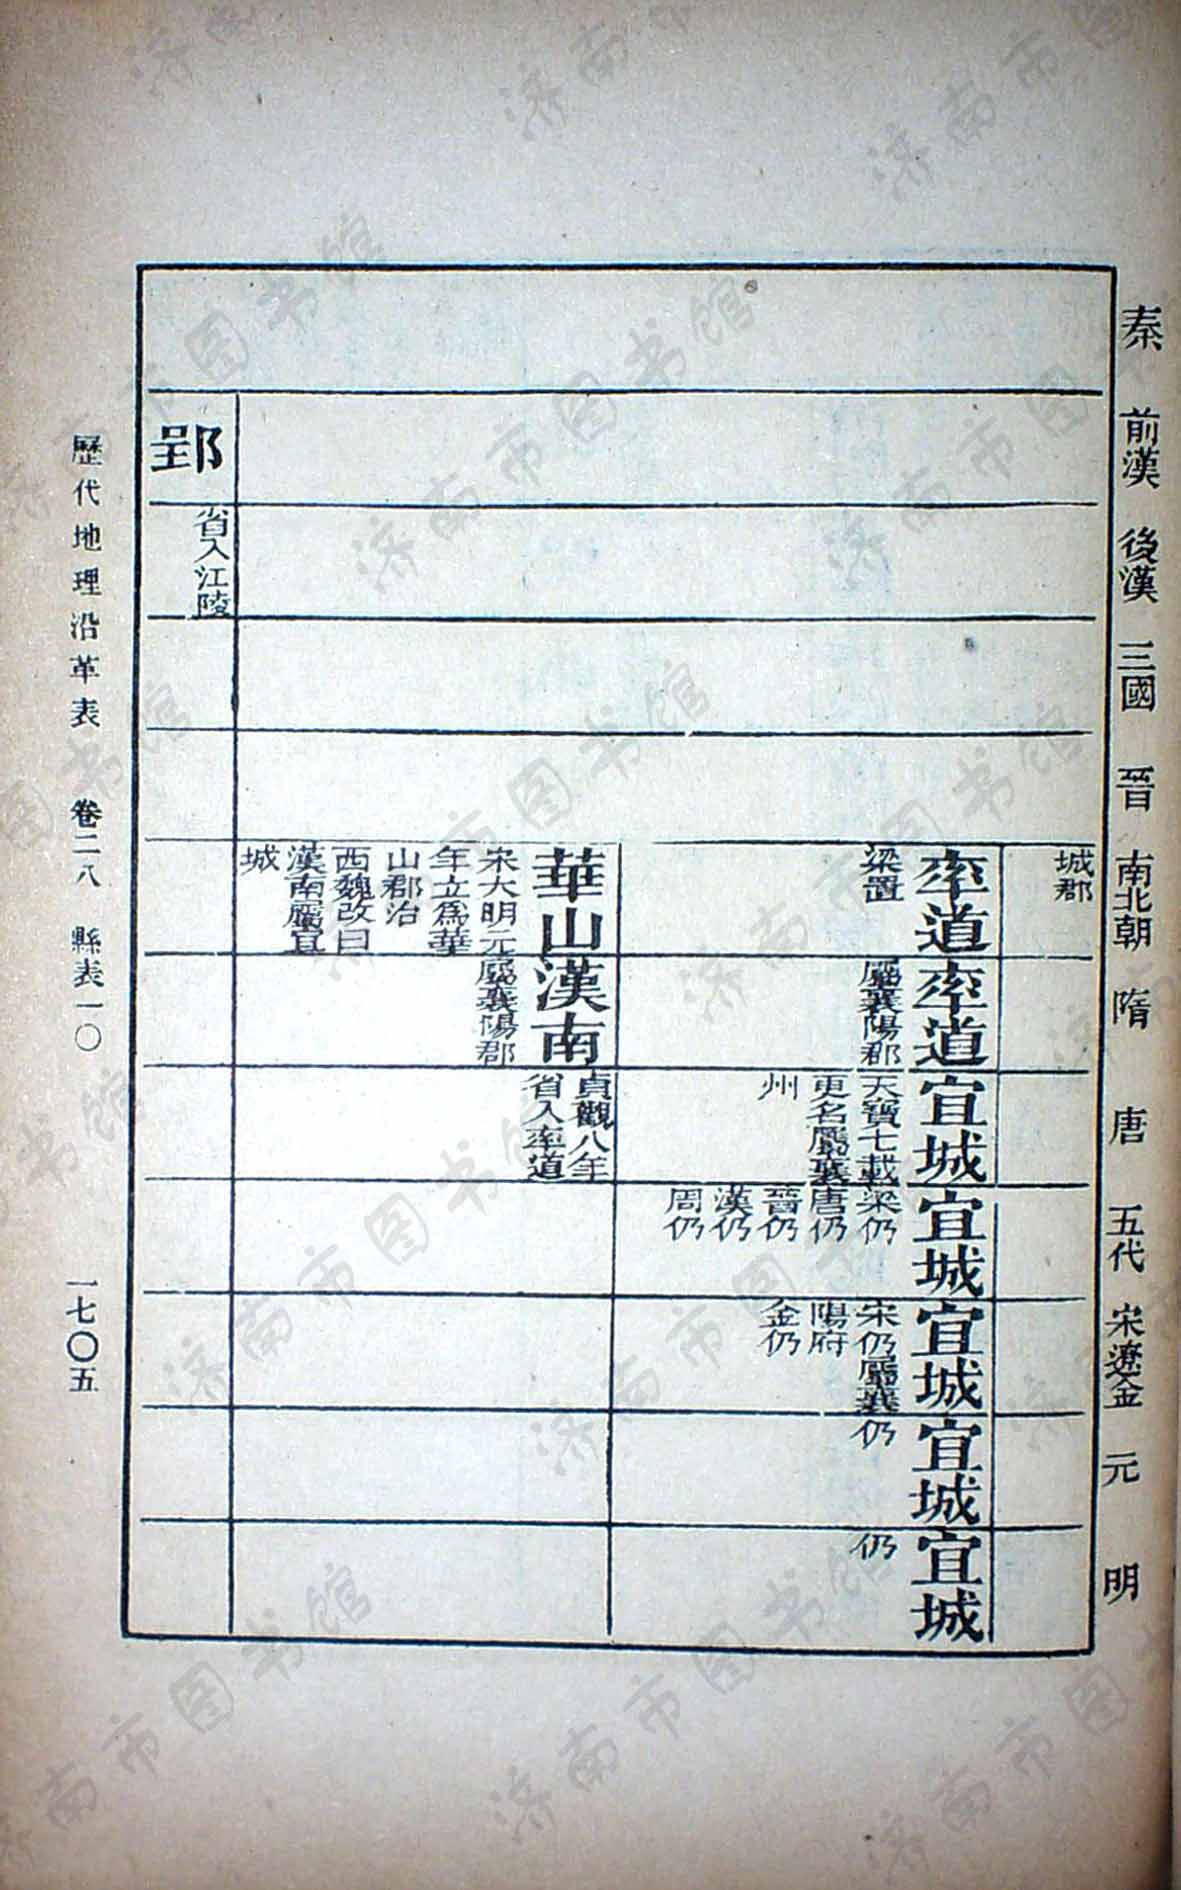 秦
前漢
後漢
三國
晉
南北朝
隋
唐
五代
宋遼金
元
明
城郡
率道
梁置
率道
屬襄陽郡
宜城
天寶七載
更名屬襄
州
宜城
梁仍
唐仍
晉仍
漢仍
周仍
宜城
宋仍屬襄
陽府
金仍
宜城
仍
宜城
仍
華山
宋大明元
年立爲華
山郡治
西魏改曰
漢南屬宜
城
漢南
屬襄陽郡
貞觀八年
省入率道
郢
省入江陵
歷代地理沿革表 卷二八 縣表一〇 一七〇五
济南市图书馆